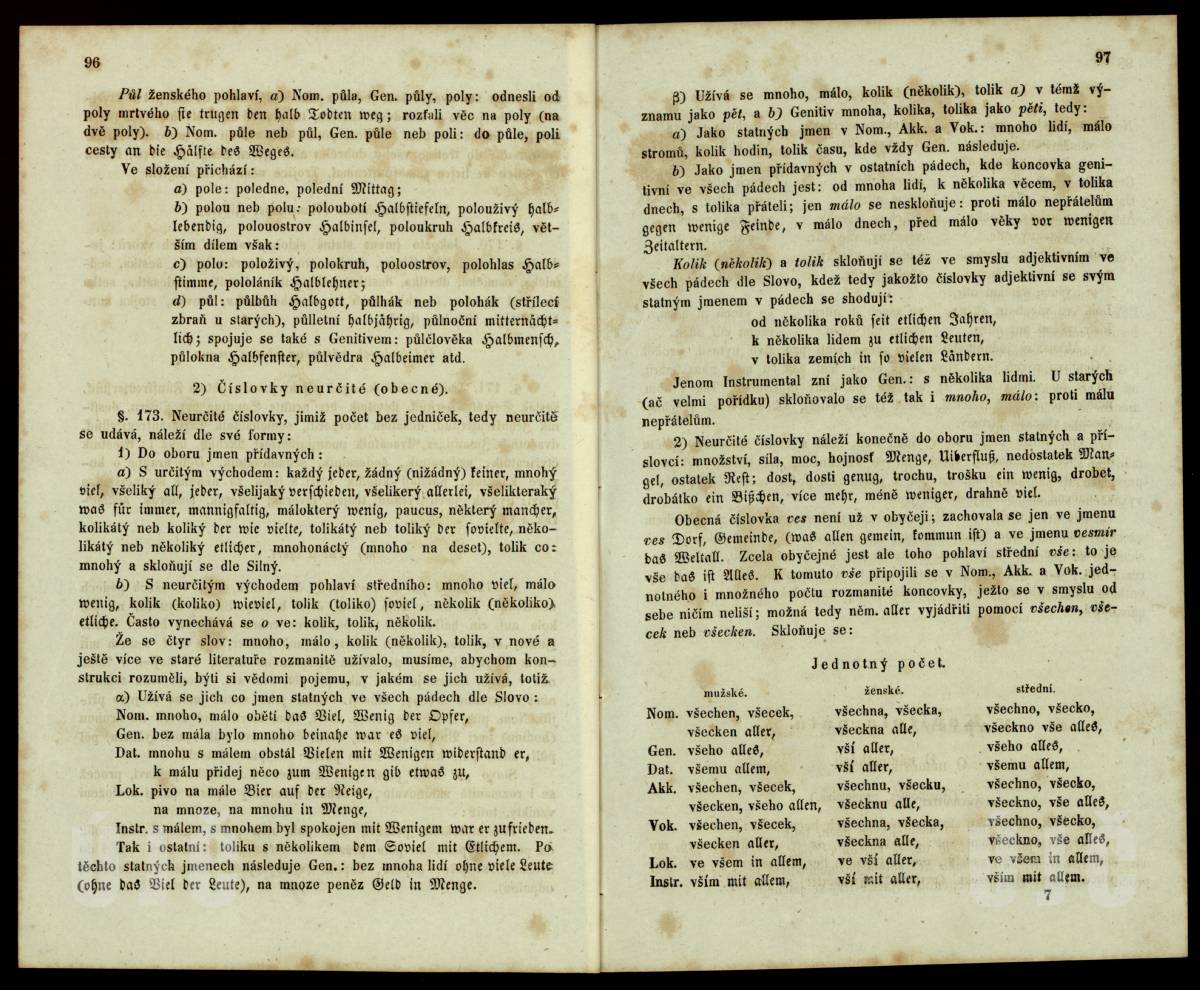 96
Půl ženského pohlaví, a) Nom. půla, Gen. půly, poly: odnesli od
poly mrtvého sie trugen den halb Todten weg; rozťali věc na poly (na
dvě poly). b) Nom. půle neb půl, Gen. půle neb poli: do půle, poli
cesty an die Hälfte des Weges.
Ve složení přichází:
a) pole: poledne, polední Mittag;
b) polou neb polu: poloubotí Halbstiefeln, polouživý halb=
lebendig, polouostrov Halbinsel, poloukruh Halbkreis, vět-
ším dílem však:
c) polo: položivý, polokruh, poloostrov, polohlas Halb=
stimme, pololáník Halblehner;
d) půl: půlbůh Halbgott, půlhák neb polohák (střílecí
zbraň u starých), půlletní halbjährig, půlnoční mitternächt=
lich; spojuje se také s Genitivem: půlčlověka Halbmensch,
půlokna Halbfenster, půlvědra Halbeimer atd.
2) Číslovky neurčité (obecné).
§. 173. Neurčité číslovky, jimiž počet bez jedniček, tedy neurčitě
se udává, náleží dle své formy:
1) Do oboru jmen přídavných:
a) S určitým východem: každý jeder, žádný (nižádný) keiner, mnohý
viel, všeliký all, jeder, všelijaký verschieden, všelikerý allerlei, všelikteraký
was für immer, mannigfaltig, málokterý wenig, paucus, některý mancher,
kolikátý neb koliký der wie vielte, tolikátý neb toliký der sovielte, něko-
likátý neb několiký etlicher, mnohonáctý (mnoho na deset), tolik co:
mnohý a skloňují se dle Silný.
b) S neurčitým východem pohlaví středního: mnoho viel, málo
wenig, kolik (koliko) wieviel, tolik (toliko) soviel, několik (několiko)
etliche. Často vynechává se o ve: kolik, tolik, několik.
Že se čtyr slov: mnoho, málo, kolik (několik), tolik, v nové a
ještě více ve staré literatuře rozmanitě užívalo, musíme, abychom kon-
strukci rozuměli, býti si vědomi pojemu, v jakém se jich užívá, totiž
α) Užívá se jich co jmen statných ve všech pádech dle Slovo:
Nom. mnoho, málo obětí das Viel, Wenig der Opfer,
Gen. bez mála bylo mnoho beinahe war es viel,
Dat. mnohu s málem obstál Vielen mit Wenigen widerstand er,
k málu přidej něco zum Wenigen gib etwas zu,
Lok. pivo na mále Bier auf der Neige,
na mnoze, na mnohu in Menge,
Instr. s málem, s mnohem byl spokojen mit Wenigem war er zufrieden.
Tak i ostatní: toliku s několikem dem Soviel mit Etlichem. Po
těchto statných jmenech následuje Gen.: bez mnoha lidí ohne viele Leute
(ohne das Viel der Leute), na mnoze peněz Geld in Menge.
97
β) Užívá se mnoho, málo, kolik (několik), tolik a) v témž vý-
znamu jako pět, a b) Genitiv mnoha, kolika, tolika jako pěti, tedy:
a) Jako statných jmen v Nom., Akk. a Vok.: mnoho lidí, málo
stromů, kolik hodin, tolik času, kde vždy Gen. následuje.
b) Jako jmen přídavných v ostatních pádech, kde koncovka geni-
tivní ve všech pádech jest: od mnoha lidí, k několika věcem, v tolika
dnech, s tolika přáteli; jen málo se neskloňuje: proti málo nepřátelům
gegen wenige Feinde, v málo dnech, před málo věky vor wenigen
Zeitaltern.
Kolik (několik) a tolik skloňují se též ve smyslu adjektivním ve
všech pádech dle Slovo, kdež tedy jakožto číslovky adjektivní se svým
statným jmenem v pádech se shodují:
od několika roků seit etlichen Jahren,
k několika lidem zu etlichen Leuten,
v tolika zemích in so vielen Ländern.
Jenom Instrumental zní jako Gen.: s několika lidmi. U starých
(ač velmi pořídku) skloňovalo se též tak i mnoho, málo: proti málu
nepřátelům.
2) Neurčité číslovky náleží konečně do oboru jmen statných a pří-
slovcí: množství, síla, moc, hojnosť Menge, Uiberfluß, nedostatek Man=
gel, ostatek Rest; dost, dosti genug, trochu, trošku ein wenig, drobet,
drobátko ein Bißchen, více mehr, méně weniger, drahně viel.
Obecná číslovka ves není už v obyčeji; zachovala se jen ve jmenu
ves Dorf, Gemeinde, (was allen gemein, kommun ist) a ve jmenu vesmír
das Weltall. Zcela obyčejné jest ale toho pohlaví střední vše: to je
vše das ist Alles. K tomuto vše připojili se v Nom., Akk. a Vok. jed-
notného i množného počtu rozmanité koncovky, ježto se v smyslu od
sebe ničím neliší; možná tedy něm. aller vyjádřiti pomocí všechen, vše-
cek neb všecken. Skloňuje se:
Jednotný počet.
mužské. ženské. střední.
Nom. všechen, všecek, všechna, všecka, všechno, všecko,
všecken aller, všeckna alle, všeckno vše alles,
Gen. všeho alles, vší aller, všeho alles,
Dat. všemu allem, vší aller, všemu allem,
Akk. všechen, všecek, všechnu, všecku, všechno, všecko,
všecken, všeho allen, všecknu alle, všeckno, vše alles,
Vok. všechen, všecek, všechna, všecka, všechno, všecko,
všecken aller, všeckna alle, všeckno, vše alles,
Lok. ve všem in allem, ve vší aller, ve všem in allem,
Instr. vším mit allem, vší mit aller, vším mit allem.
7